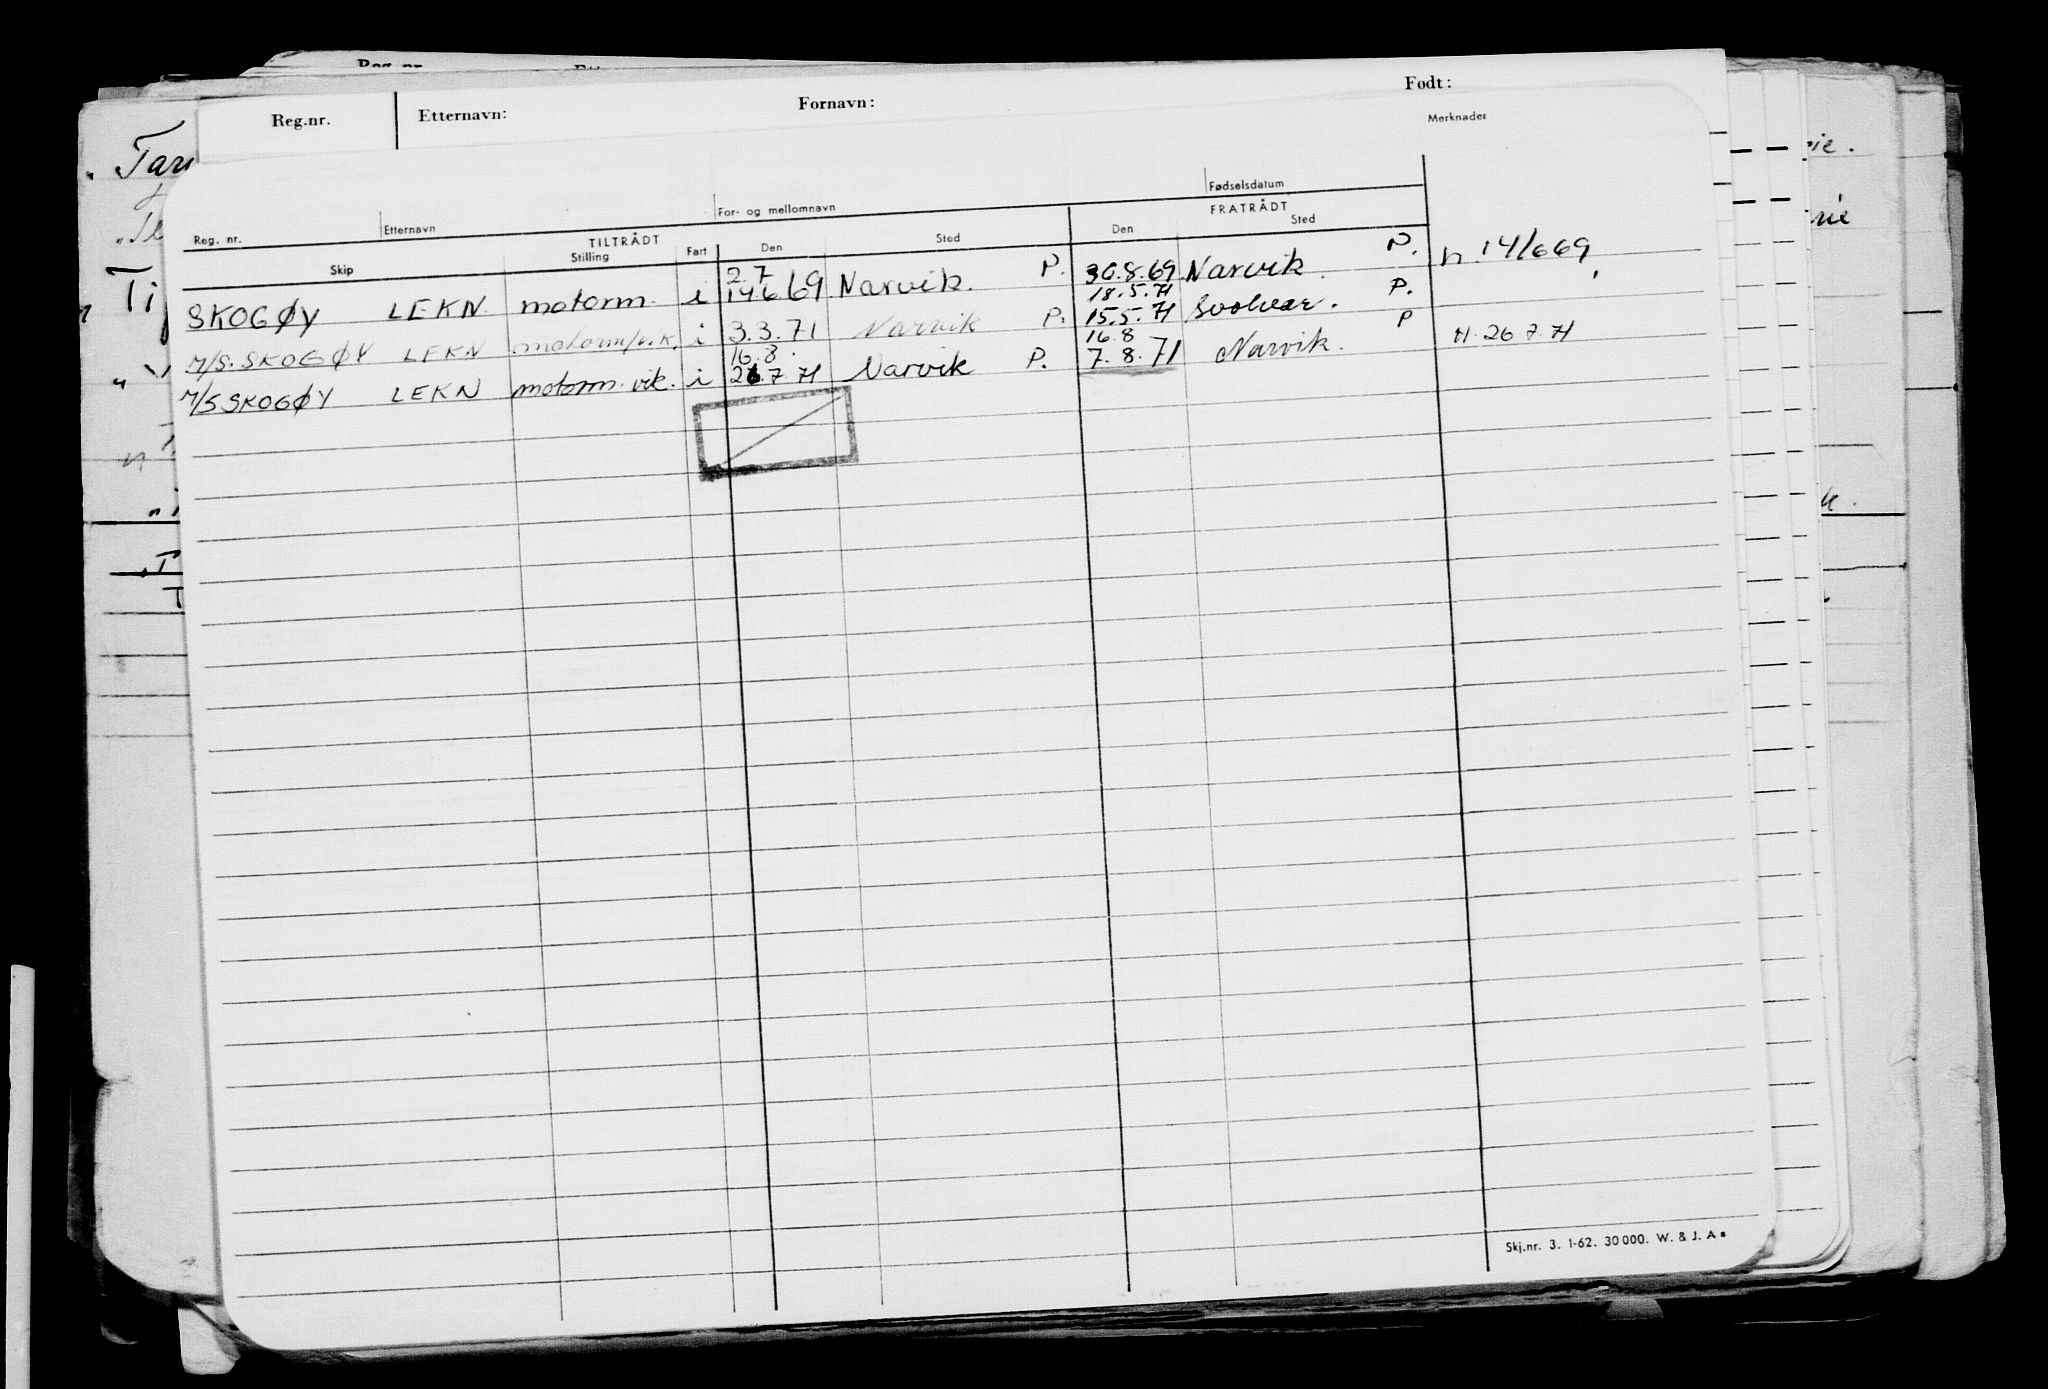 Reg.nr. Etternavn: Fornavn: Født:
Merknader
Reg. nr. Etternavn For- og mellomnavn Fødselsdatum
TILTRÅDT FRATRÅDT
Skip Stilling Fart Den Sted Den Sted
2.7
SKOGØY LEKN motorm. i 14669 Narvik. P. 30.8.69 Narvik. P. n. 14/669
18.5.71
M/S. SKOGØY LEKN motorm/v.k. i 3.3.71 Narvik P. 15.5.71 Svolvær. P.
16.8. 16.8
M/S SKOGØY LEKN motorm. vik. i 26.7.71 Narvik P. 7.8.71 Narvik. P N. 26.7.71
Skj.nr. 3. 1-62. 30 000. W. & J. A s